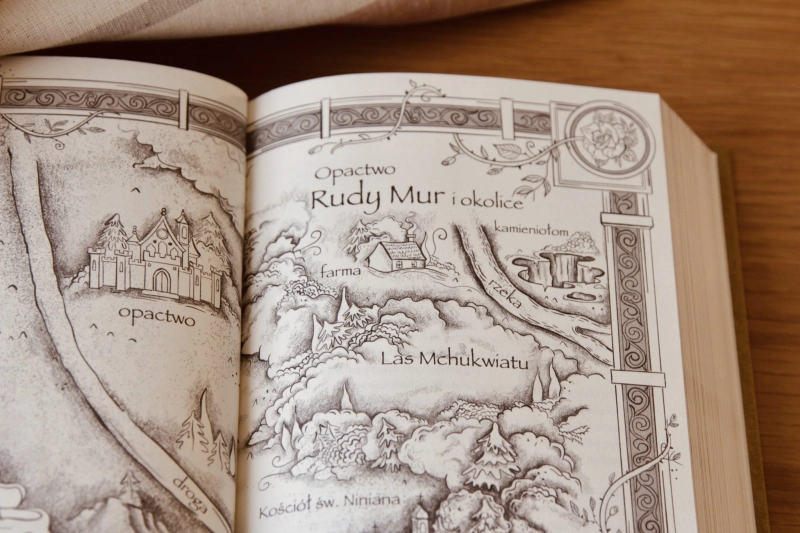 opactwo
droga
Opactwo
Rudy Mur i okolice
kamieniołom
farma
rzeka
Las Mchukwiatu
Kościół św. Niniana